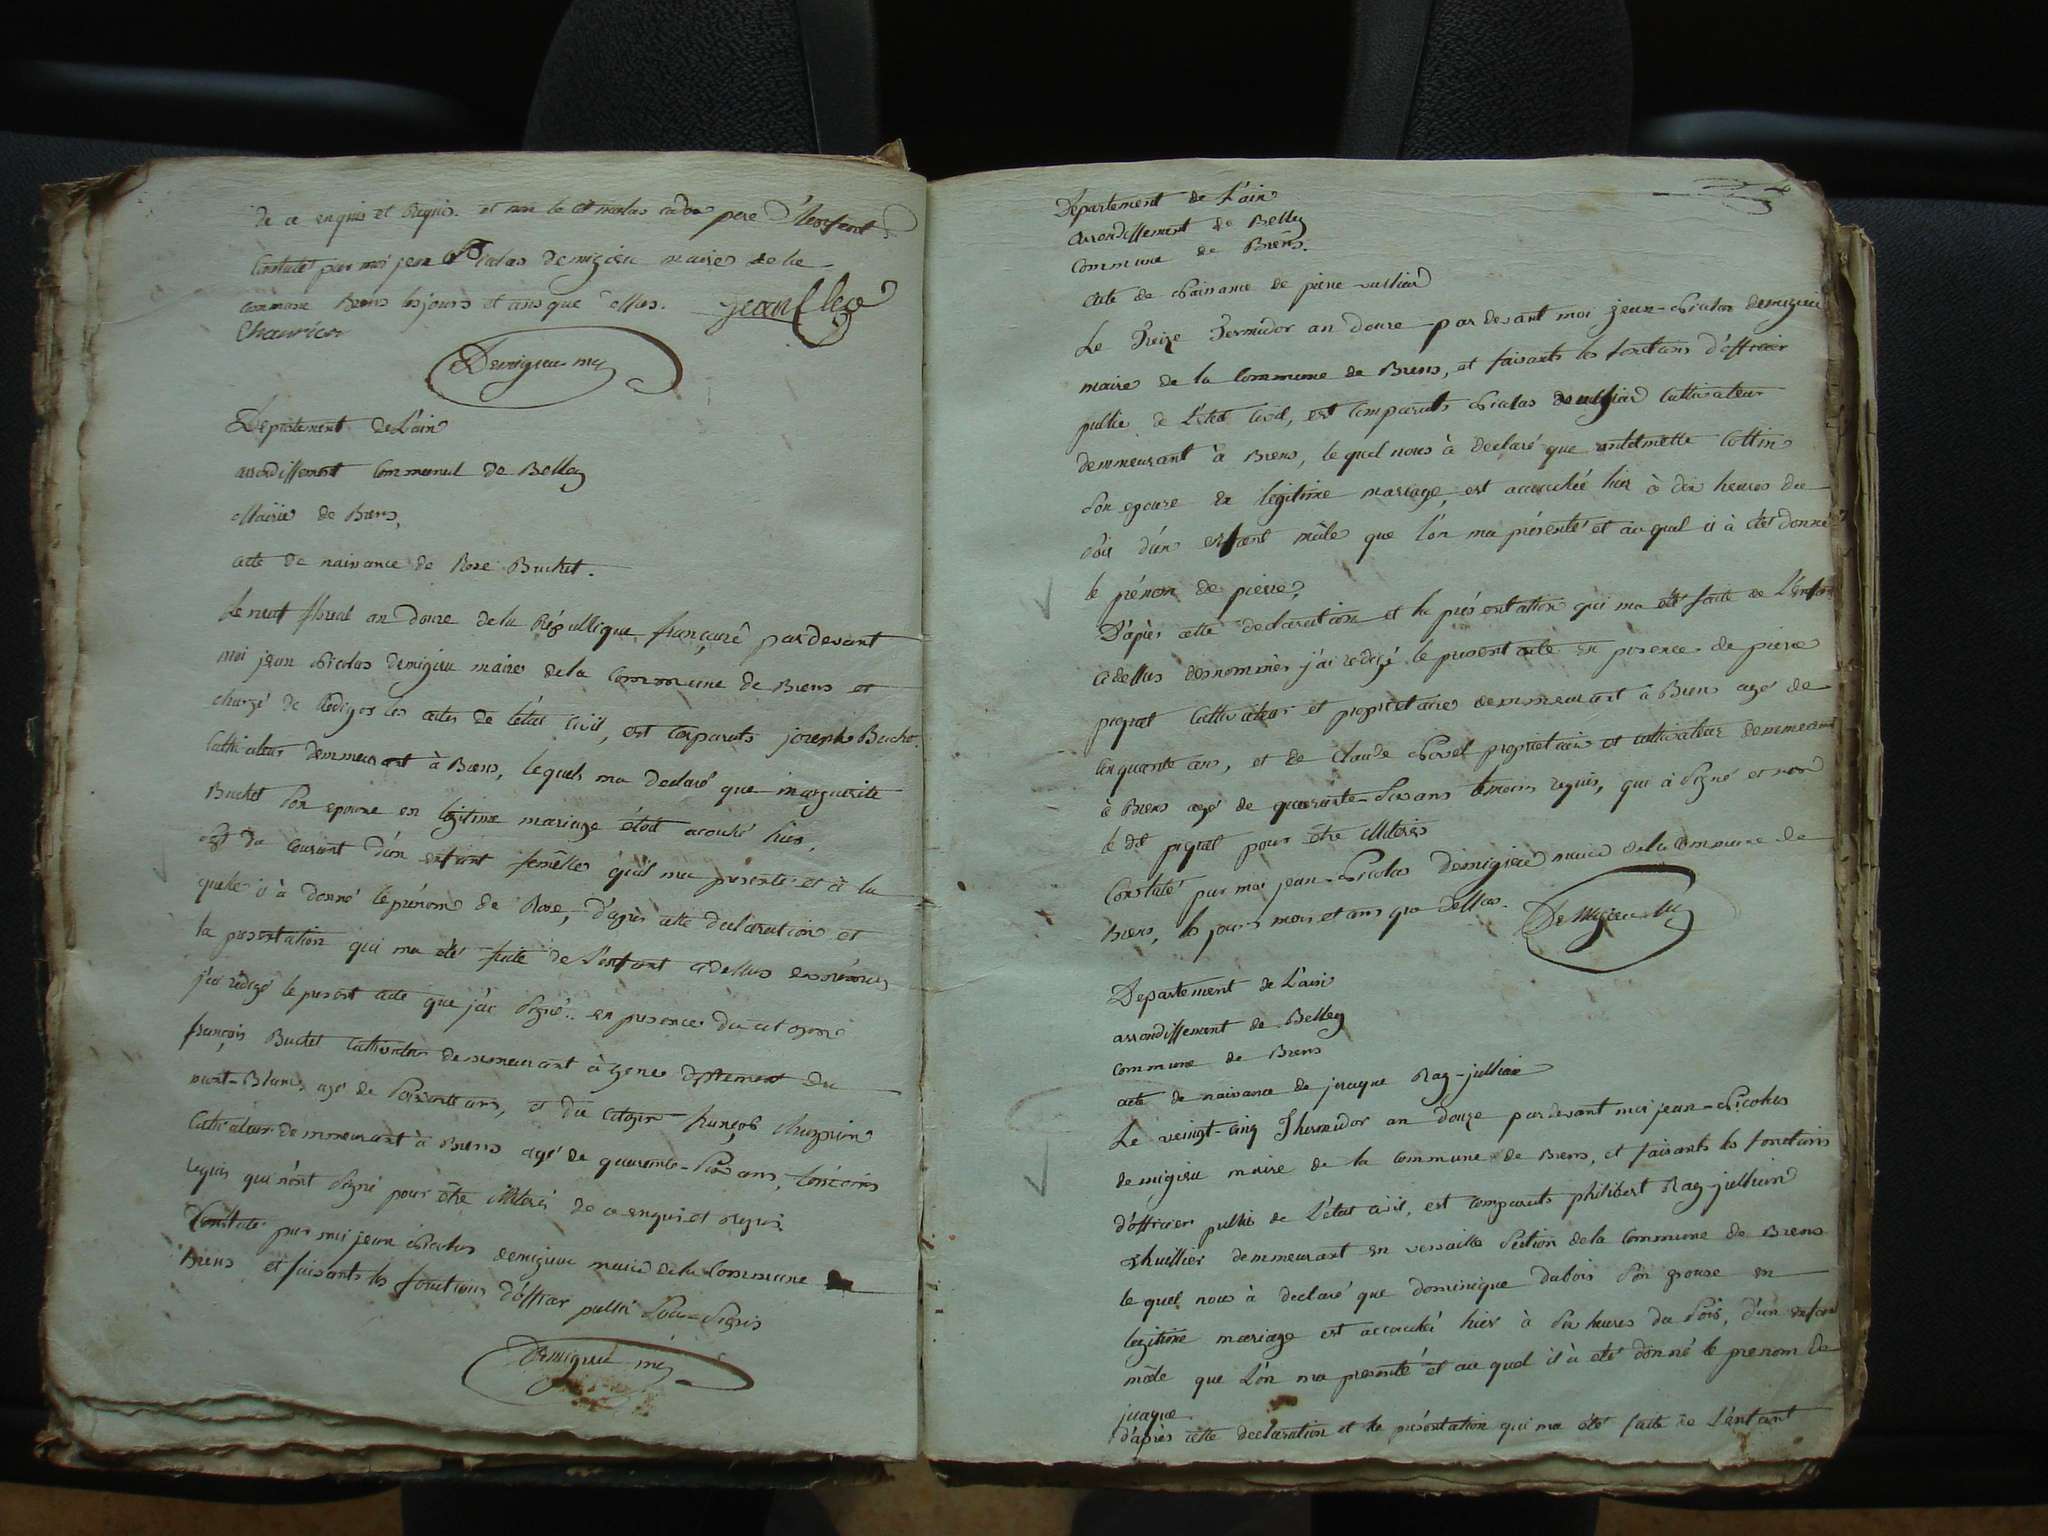 de ce enquis et Requis. et non le
Constaté par moi jean Nicolas demigieu maire de la
commune Brens les jours et ans que dessus. jean
Demigieu
Departement de L'ain
arrondissement communal de Belley
Mairie de Brens,
acte de naissance de Rose Buchet.
Le neuf floreal an douze de la République françaize pardevant
moi jean Nicolas demigieu maire de la commune de Brens et
chargé de Rediger les actes de l'état civil, est comparuts joseph Buchet
Cultivateur demmeurant à Brens, lequels ma declaré que marguerite
Buchet son epouse en legitime mariage étoit acouché hier,
du courant d'un enfant femelle qu'il ma présenté et à la
quelle il à donné le prénom de Rose, d'après cette declaration et
la presentation qui ma été faite de l'enfant cidessus
j'ai redigé le present acte que j'ai signé. en presence du citoyen
françois Buchet Cultivateur demmeurant à du
mont-Blanc, agé de ans, et du citoyen françois
Cultivateur demmeurant à Brens agé de quarante-six ans, temoins
requis qui n'ont signé pour être illiterés de ce enquis et requis
Constaté par moi jean Nicolas demigieu maire de la Commune
Brens et faisants les fonctions d'officier public
Demigieu
Departement de L'ain
arrondissement de Belley
commune de Brens.
acte de Naissance de piere
Le Treize Termidor an douze pardevant moi jean-Nicolas demigieu
maire de la Commune de Brens, et faisants les fonctions d'officier
public de L'état Civil, est comparuts Nicolas Cultivateur
demmeurant à Brens, lequel nous à declaré que Cottin
son epouse en legitime mariage, est accouchée hier à dix heures du
soir d'un enfant mâle que l'on ma présenté et au quel il à été donné
le prénom de pierre,
D'après cette declaration et la présentation qui ma été faite de L'enfant
cidessus denommés j'ai redigé le present acte en presence de piere
piquet Cultivateur et proprietaire demmeurant à Brens agé de
cinquante ans, et de Claude proprietaire et cultivateur demmeurant
à Brens agé de quarante-six ans temoins requis, qui à signé et non
le dit piquet pour être illiterés
Constaté par moi jean-Nicolas demigieu maire de la Commune de
Brens, les jours mois et ans que dessus. Demigieu
Departement de L'ain
arrondissement de Belley
commune de Brens
acte de naissance de jacque Ray-jullian
Le veingt-cinq Thermidor an douze pardevant moi jean-Nicolas
demigieu maire de la commune de Brens, et faisants les fonctions
d'officier public de L'état civil, est comparuts philibert Ray-jullian
thuillier demmeurant en versaille Section de la Commune de Brens
lequel nous à declaré que dominique dubois son epouse en
legitime mariage est accouchée hier à six heures du soir, d'un enfant
mâle que l'on ma presenté et au quel il à été donné le prenom de
jacque
d'après cette declaration et la présentation qui ma été faite de L'enfant